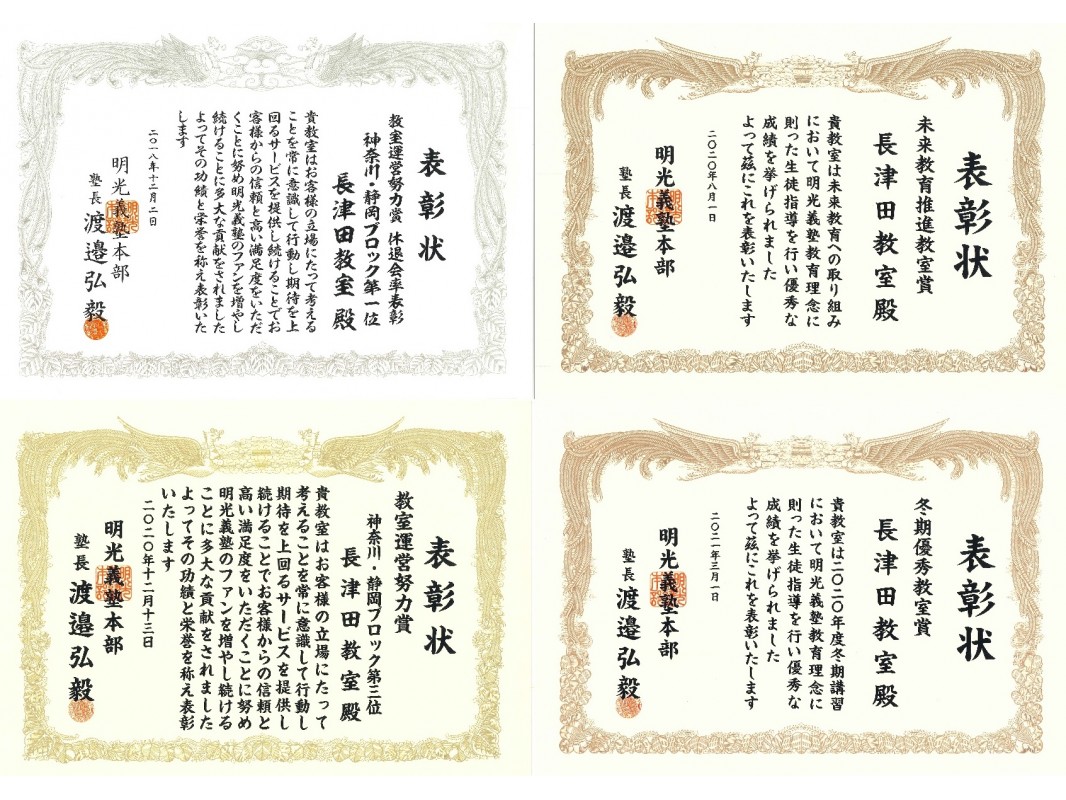 表彰状
教室運営努力賞 休退会率表彰
神奈川・静岡ブロック第一位
長津田教室 殿
貴教室はお客様の立場にたって考える
ことを常に意識して行動し期待を上
回るサービスを提供し続けることでお
客様からの信頼と高い満足度をいただ
くことに努め明光義塾のファンを増やし
続けることに多大な貢献をされました
よってその功績と栄誉を称え表彰いた
します
二〇一八年十二月二日
明光義塾本部
塾長 渡邉弘毅
表彰状
未来教育推進教室賞
長津田教室殿
貴教室は未来教育への取り組み
において明光義塾教育理念に
則った生徒指導を行い優秀な
成績を挙げられました
よって茲にこれを表彰いたします
二〇二〇年八月一日
明光義塾本部
塾長 渡邉弘毅
表彰状
教室運営努力賞
神奈川・静岡ブロック第三位
長津田教室殿
貴教室はお客様の立場にたって
考えることを常に意識して行動し
期待を上回るサービスを提供し
続けることでお客様からの信頼と
高い満足度をいただくことに努め
明光義塾のファンを増やし続ける
ことに多大な貢献をされました
よってその功績と栄誉を称え表彰
いたします
二〇二〇年十二月十三日
明光義塾本部
塾長 渡邉弘毅
表彰状
冬期優秀教室賞
長津田教室殿
貴教室は二〇二〇年度冬期講習
において明光義塾教育理念に
則った生徒指導を行い優秀な
成績を挙げられました
よって茲にこれを表彰いたします
二〇二一年三月一日
明光義塾本部
塾長 渡邉弘毅